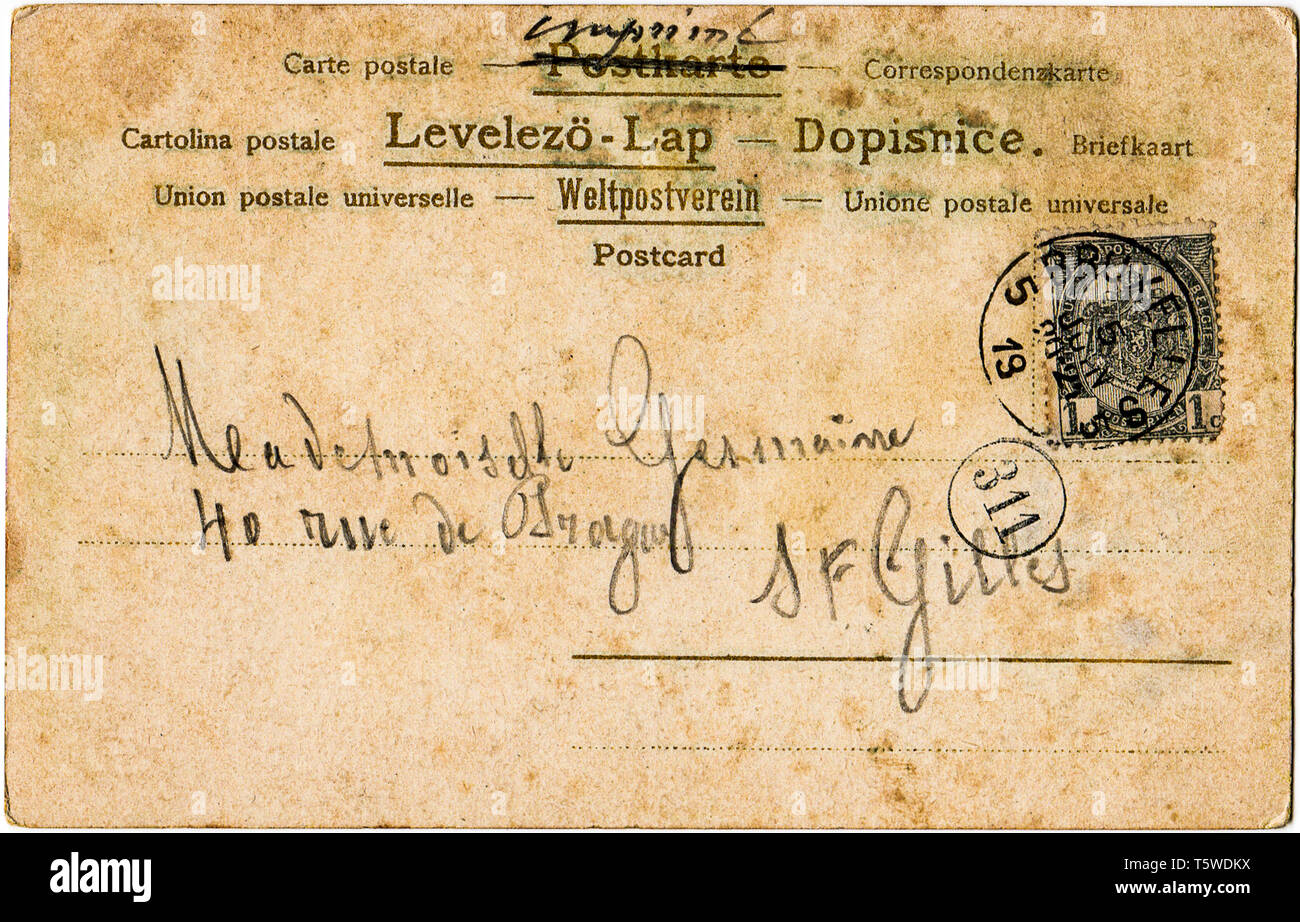 imprimé
Carte postale — Postkarte — Correspondenzkarte
Cartolina postale Levelezö-Lap — Dopisnice. Briefkaart
Union postale universelle — Weltpostverein — Unione postale universale
Postcard
POSTES
BRUXELLES 5
5 18
5
JUIN
1 1c
311
Mademoiselle Germaine
40 rue de
St. Gilles
alamy
Image ID: T5WDKX
www.alamy.com